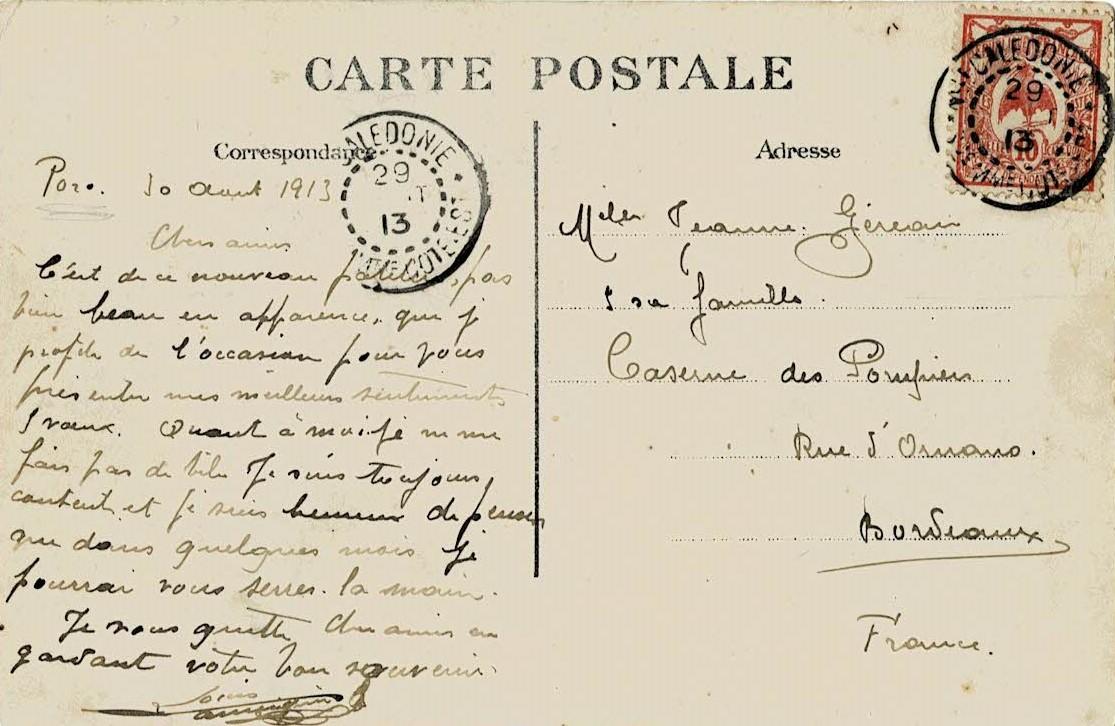 CARTE POSTALE
Correspondance
Adresse
Poro. 30 Aout 1913
Chers amis
C'est de ce nouveau pas
bien beau en apparence, que je
profite de l'occasion pour vous
présenter mes meilleurs sentiments
vœux. Quant à moi je ne me
fais pas de bile Je suis toujours
content et je suis heureux de penser
que dans quelques mois je
pourrai vous serrer la main.
Je vous quitte Chers amis en
gardant votre bon souvenir
Louis
Jeanne
sa famille.
Caserne des Pompiers
Rue d'Ornano.
Bordeaux
France.
CALEDONIE
29
13
COTE-EST
Nlle CALEDONIE
29
13
10